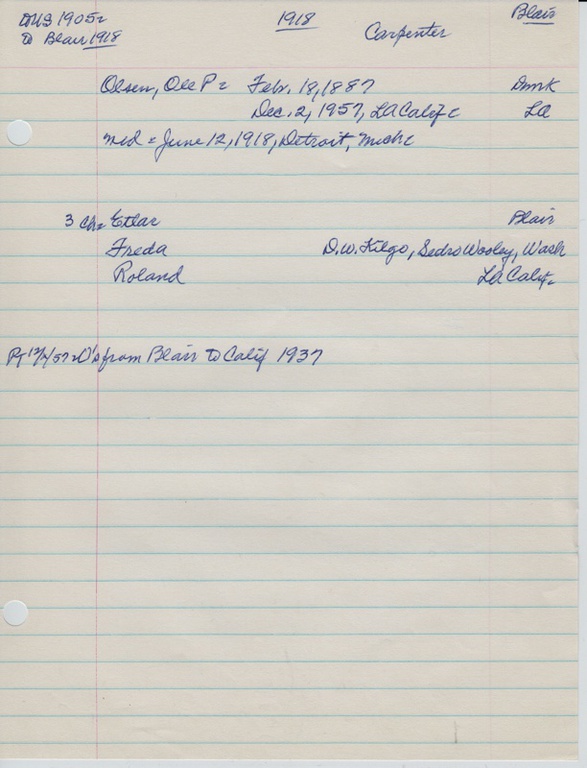 to US 1905 1918 Blair
to Blair 1918 Carpenter
Olsen, Ole P = Feb. 18, 1887 Dmrk
Dec. 2, 1957, LA Calif LA
md = June 12, 1918, Detroit, Mich
3 ch = Etlar Blair
Freda D.W. Kilgo, Sedro Wooley, Wash
Roland LA Calif
PT 12/ /57 = O's from Blair to Calif 1937